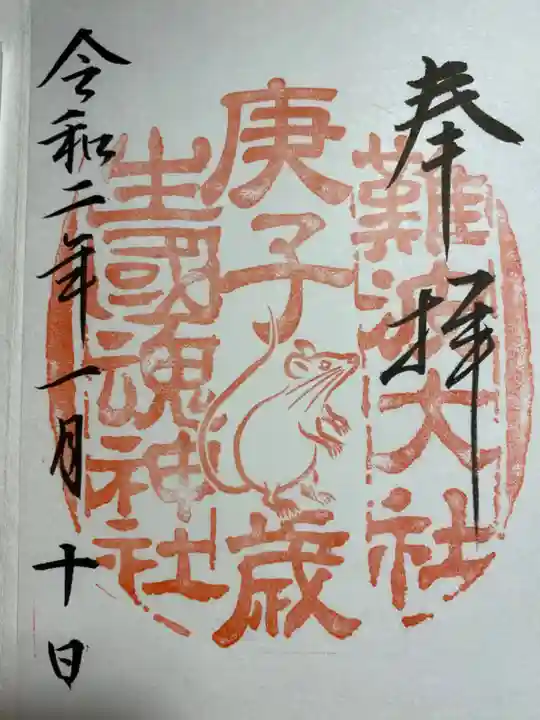 奉拝
難波大社
庚子歳
生國魂神社
令和二年一月十日